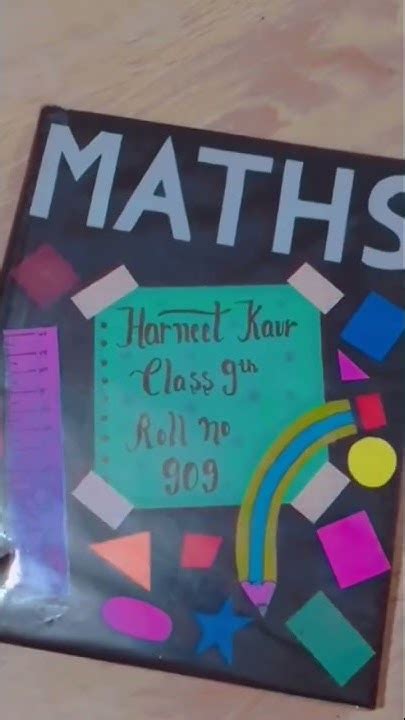 MATHS
Harneet Kaur
Class 9th
Roll no
909